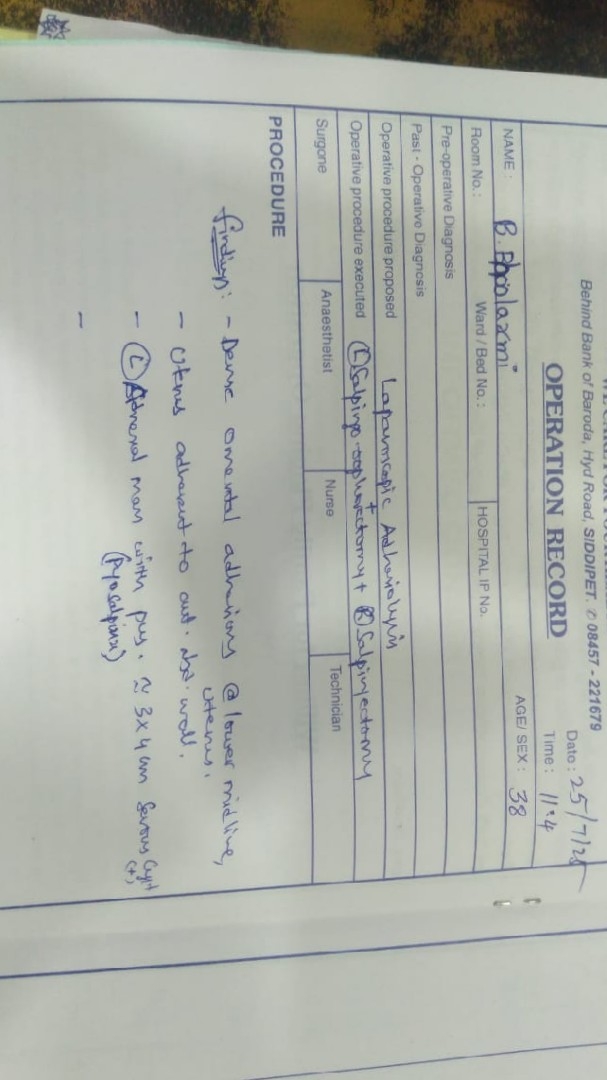 Behind Bank of Baroda, Hyd Road, SIDDIPET. ✆ 08457 - 221679
OPERATION RECORD
Date : 25/7/25
Time : 11:4
NAME : B. AGE/ SEX : 38
Room No. : Ward / Bed No. : HOSPITAL IP No.
Pre-operative Diagnosis
Past - Operative Diagnosis
Operative procedure proposed Laparoscopic Adhesiolysis
+
Operative procedure executed (L) Salpingo-oophorectomy + (R) Salpingectomy
Surgone Anaesthetist Nurse Technician
PROCEDURE
findings : - Dense omental adhesions @ lower midline,
uterus.
- Uterus adherent to ant. abd. wall.
- (L) Adnexal mass with pus. ≈ 3x4 cm Serous Cyst
(Pyosalpinx) (+)
-